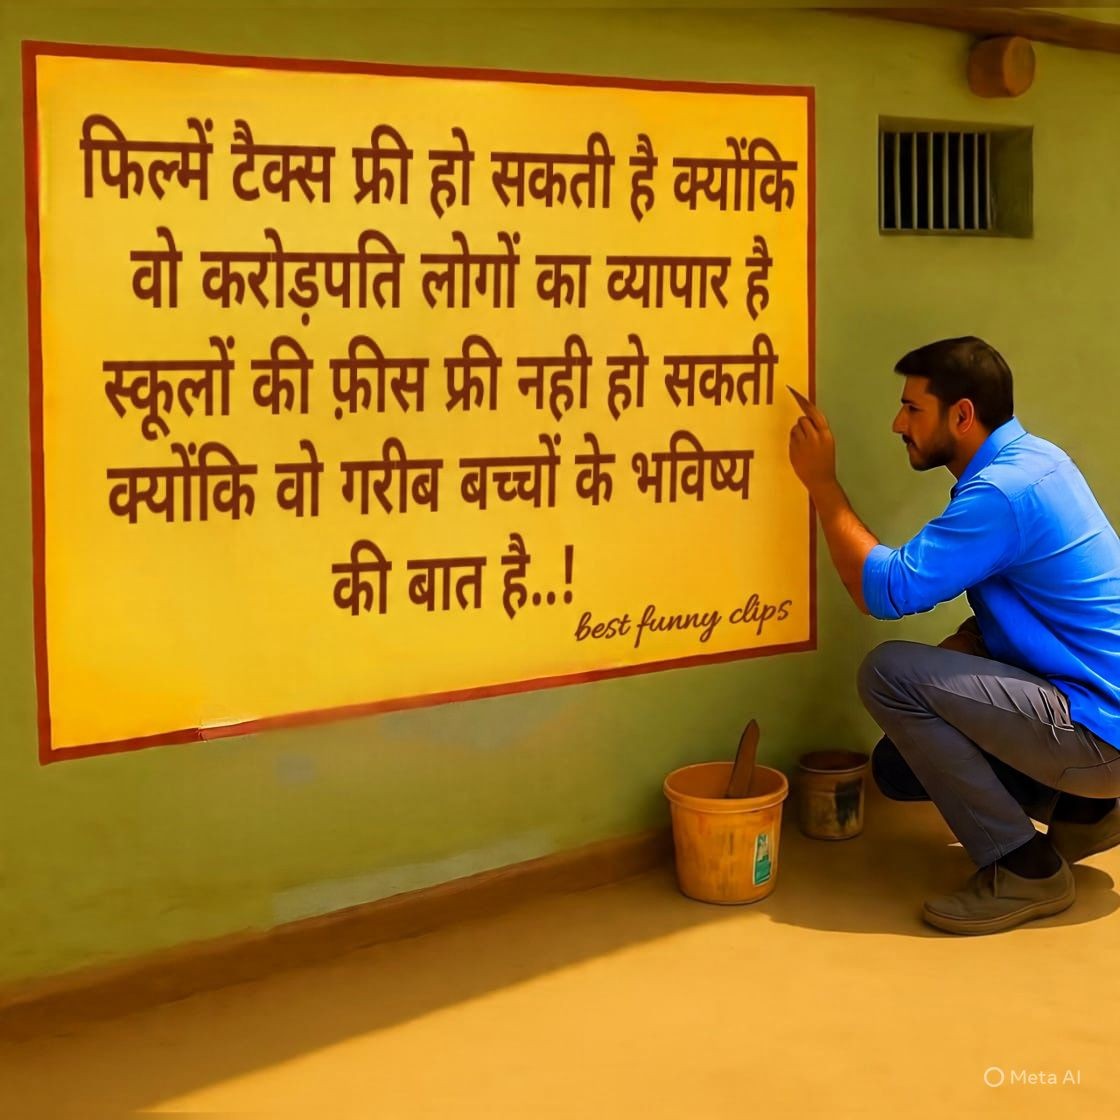 फिल्में टैक्स फ्री हो सकती है क्योंकि
वो करोड़पति लोगों का व्यापार है
स्कूलों की फ़ीस फ्री नही हो सकती
क्योंकि वो गरीब बच्चों के भविष्य
की बात है..!
best funny clips
Meta AI